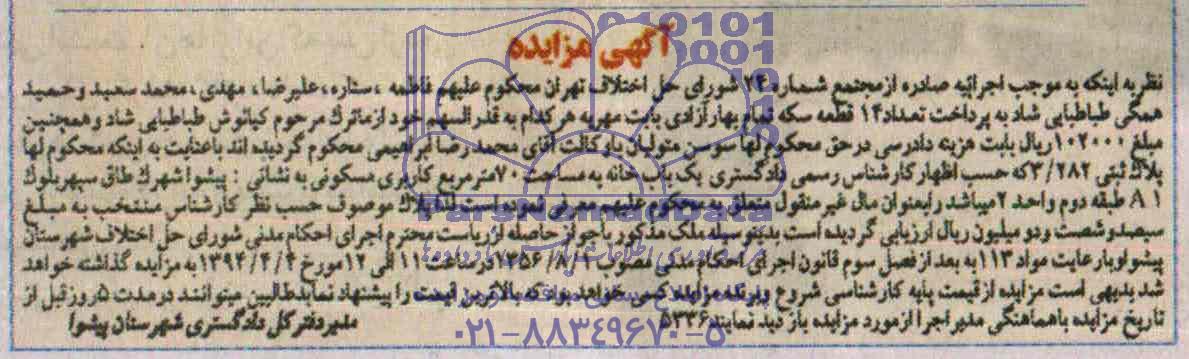 آگهی مزایده
نظر به اینکه به موجب اجرائیه صادره از مجتمع شماره ۲۴ شورای حل اختلاف تهران محکوم علیهم فاطمه ، ستاره، علیرضا، مهدی، محمد سعید و حمید
همگی طباطبایی شاد به پرداخت تعداد ۱۴ قطعه سکه تمام بهار آزادی بابت مهریه هر کدام به قدر السهم خود از ماترک مرحوم کیانوش طباطبایی شاد و همچنین
مبلغ ۱۰۲۰۰۰ ریال بابت هزینه دادرسی در حق محکوم لها سوسن متولیان با وکالت آقای محمد رضا ابراهیمی محکوم گردیده اند با عنایت به اینکه محکوم لها
پلاک ثبتی ۳/۲۸۲ که حسب اظهار کارشناس رسمی دادگستری یک باب خانه به مساحت ۷۰ متر مربع کاربری مسکونی به نشانی : پیشوا شهرک طاق سپهر بلوک
A ۱ طبقه دوم واحد ۲ میباشد را بعنوان مال غیر منقول متعلق به محکوم علیهم معرفی نموده است لذا پلاک موصوف حسب نظر کارشناس منتخب به مبلغ
سیصد و شصت و دو میلیون ریال ارزیابی گردیده است بدینوسیله ملک مذکور با جواز حاصله از ریاست محترم اجرای احکام مدنی شورای حل اختلاف شهرستان
پیشوا و با رعایت مواد ۱۱۳ به بعد از فصل سوم قانون اجرای احکام مدنی مصوب ۱۳۵۶/۸/۱ در ساعت ۱۱ الی ۱۲ مورخ ۱۳۹۴/۴/۴ به مزایده گذاشته خواهد
شد بدیهی است مزایده از قیمت پایه کارشناسی شروع و برنده مزایده کسی خواهد بود که بالاترین قیمت را پیشنهاد نماید طالبین میتوانند در مدت ۵ روز قبل از
تاریخ مزایده با هماهنگی مدیر اجرا از مورد مزایده بازدید نمایند ۵۳۳۶
مدیر دفتر کل دادگستری شهرستان پیشوا
ParsNamadData
۰۲۱-۸۸۳۴۹۶۷۰-۵